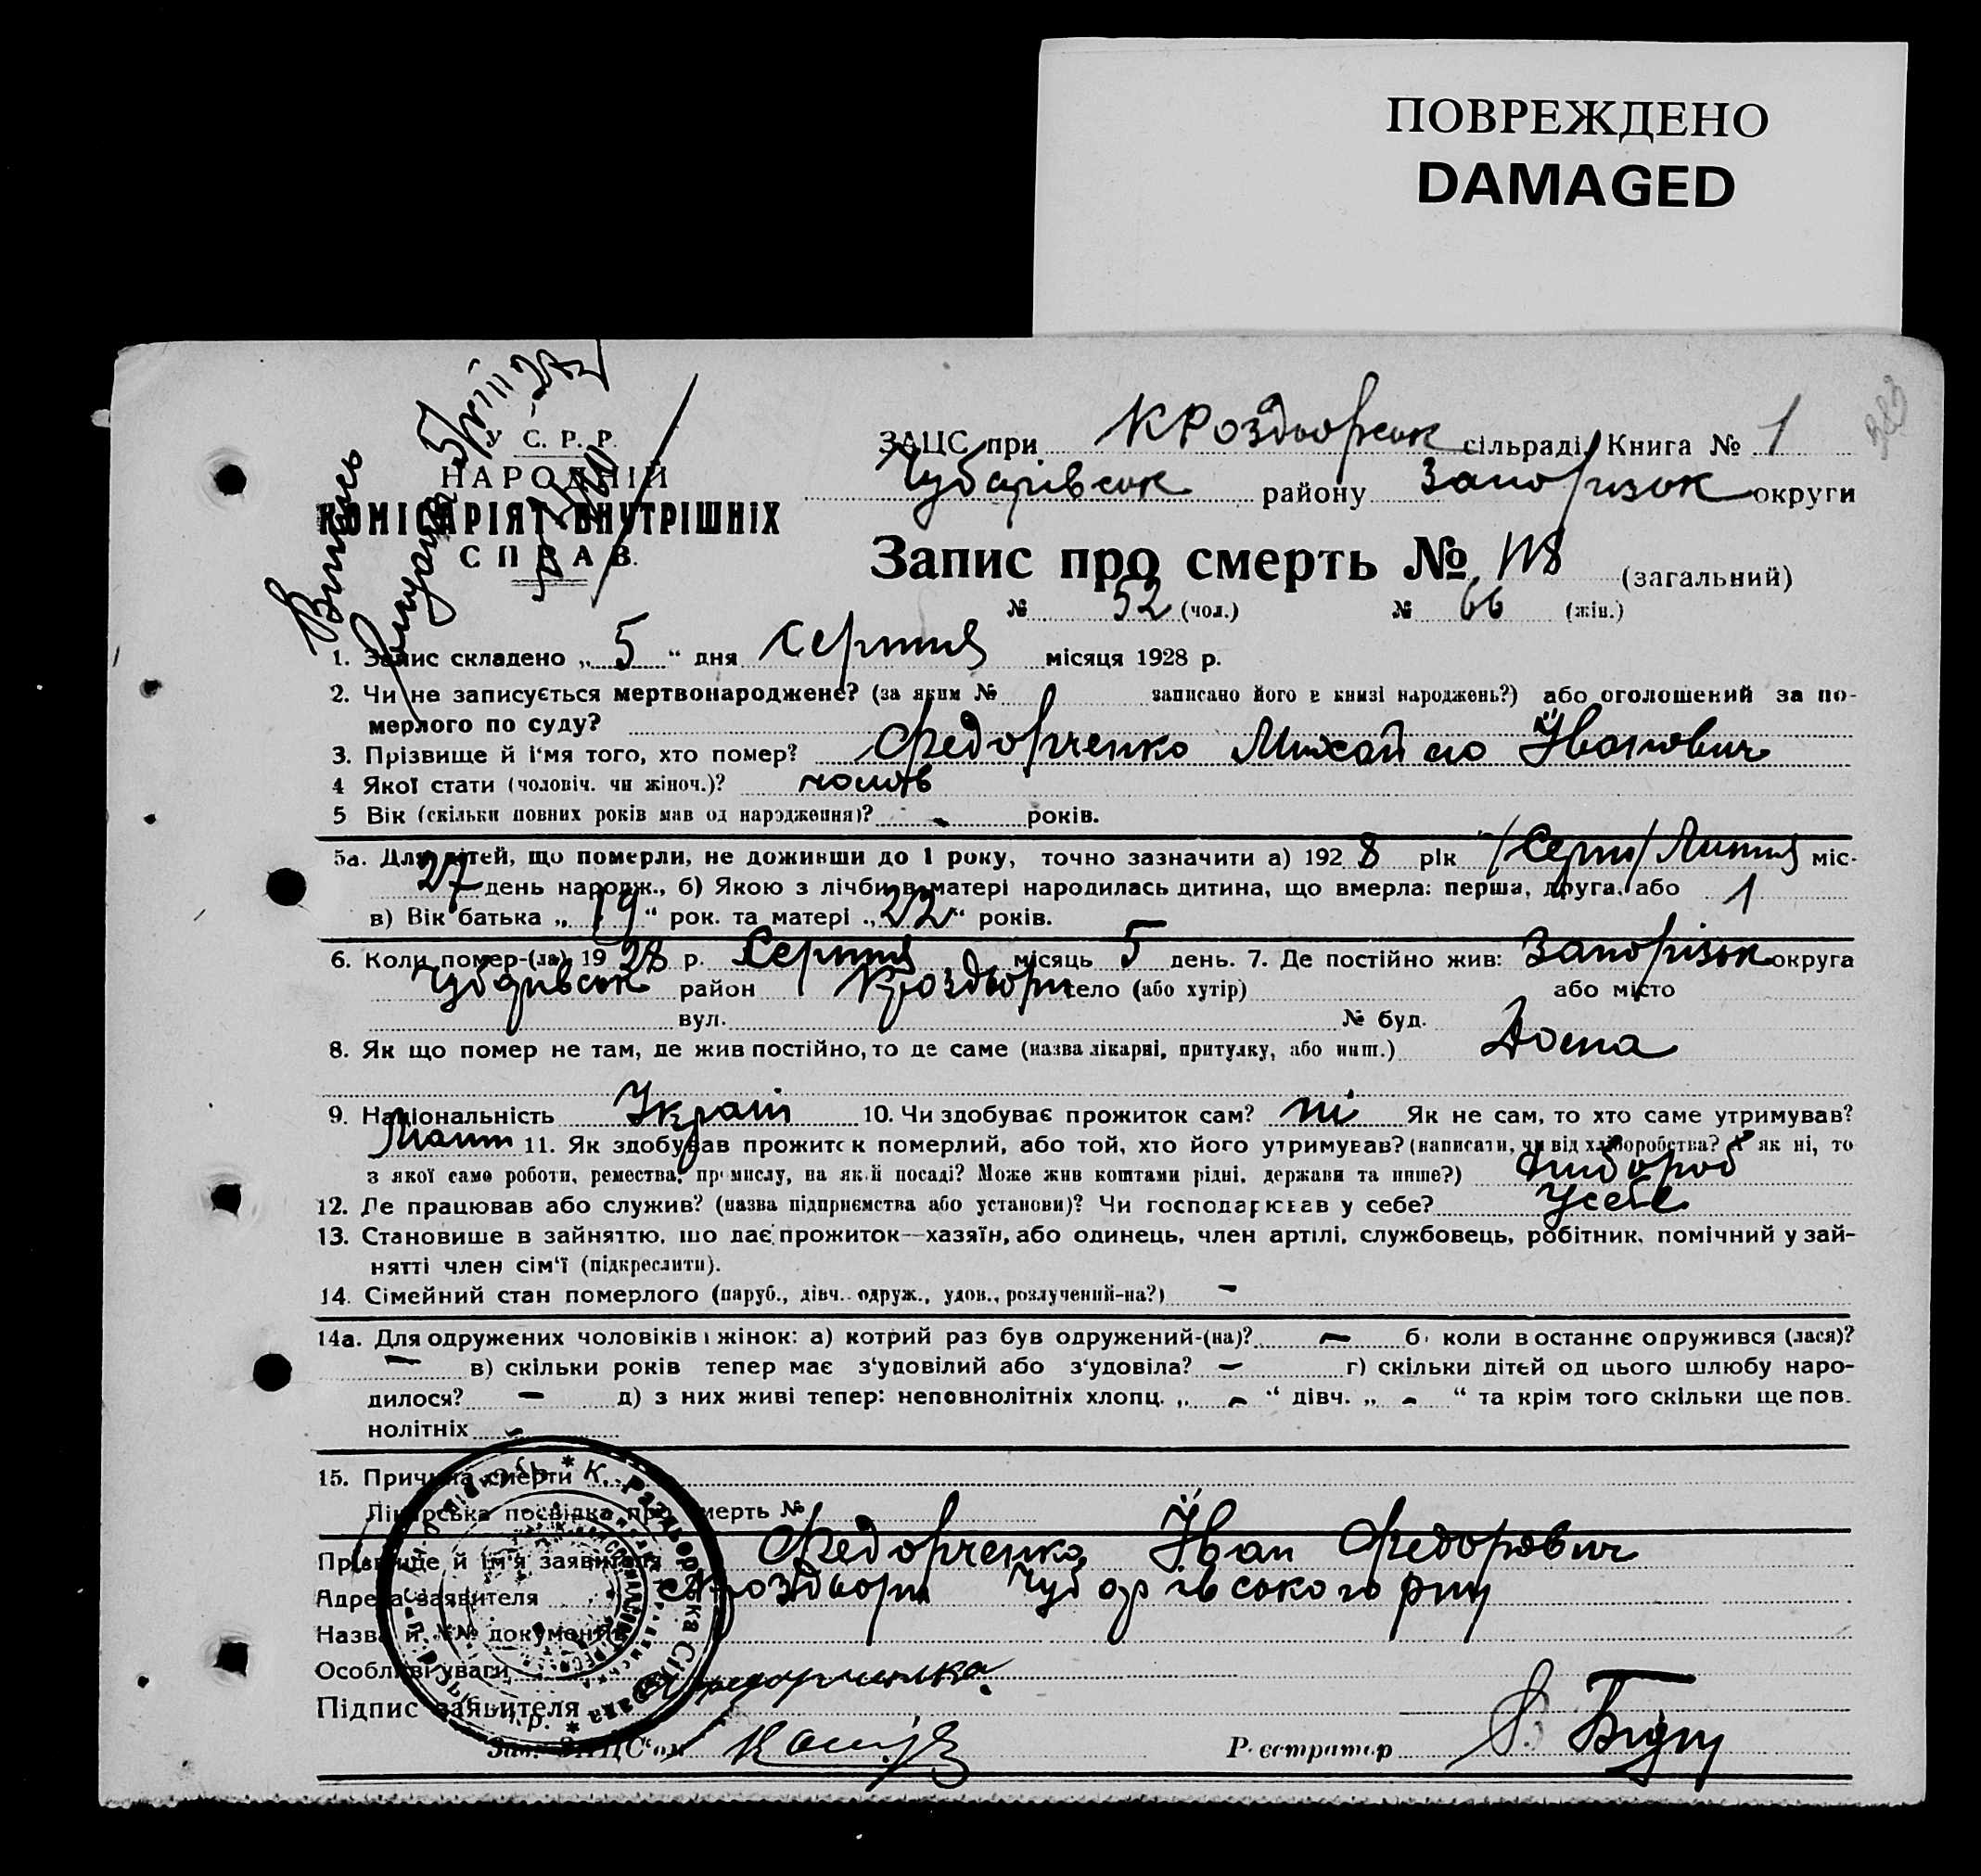 ПОВРЕЖДЕНО
DAMAGED
У С. Р. Р.
НАРОДНІЙ
КОМІСАРІЯТ ВНУТРІШНІХ
СПРАВ.
Випись
ЗАЦС при К Роздорськ сільраді Книга № 1
Чубарівськ району Запоризьк округи
Запис про смерть № 118 (загальний)
№ 52 (чол.) № 66 (жін.)
1. Запис складено „ 5 “ дня серпня місяця 1928 р.
2. Чи не записується мертвонароджене? (за яким № записано його в книзі народжень?) або оголошений за по-
мерлого по суду?
3. Прізвище й і‘мя того, хто помер? Федорченко Михайло Їванович
4 Якої стати (чоловіч. чи жіноч.)? чолов
5 Вік (скільки повних років мав од народження)? - років.
5а. Для дітей, що померли, не доживши до 1 року, точно зазначити а) 192 8 рік /Серпн/ Липня міс-
27 день народж., б) Якою з лічби в матері народилась дитина, що вмерла: перша, друга, або 1
в) Вік батька „ 19 “ рок. та матері „ 22 “ років.
6. Коли помер-(ла) 19 28 р. Серпня місяць 5 день. 7. Де постійно жив: Запорізьк округа
Чубарівськ район Кроздори село (або хутір) або місто
вул. № буд.
8. Як що помер не там, де жив постійно, то де саме (назва лікарні, притулку, або инш.) Дома
9. Національність Україн 10. Чи здобуває прожиток сам? ні Як не сам, то хто саме утримував?
11. Як здобував прожиток померлий, або той, хто його утримував? (написати, чи від хліборобства? А як ні, то
з якої саме роботи, ремества, промислу, на якій посаді? Може жив коштами рідні, держави та инше?) хлібороб
12. Де працював або служив? (назва підприємства або установи)? Чи господарював у себе? У себе
13. Становище в зайняттю, що дає прожиток—хазяїн, або одинець, член артілі, службовець, робітник, помічний у зай-
нятті член сім‘ї (підкреслити).
14. Сімейний стан померлого (паруб., дівч. одруж., удов., розлучений-на?) -
14а. Для одружених чоловіків і жінок: а) котрий раз був одружений-(на)? - б) коли востаннє одружився (лася)?
- в) скільки років тепер має з‘удовілий або з‘удовіла? - г) скільки дітей од цього шлюбу наро-
дилося? - д) з них живі тепер: неповнолітніх хлопц. „ - “ дівч. „ - “ та крім того скільки ще пов.
нолітніх -
15. Причина смерти
Лікарська посвідка про смерть №
Прізвище й ім‘я заявителя Федорченко Їван Федорович
Адреса заявителя Кроздори Чубарівського рну
Назва й №№ документів
Особливі уваги
Підпис заявителя
Зав. ЗАЦС‘ом
Реєстратор